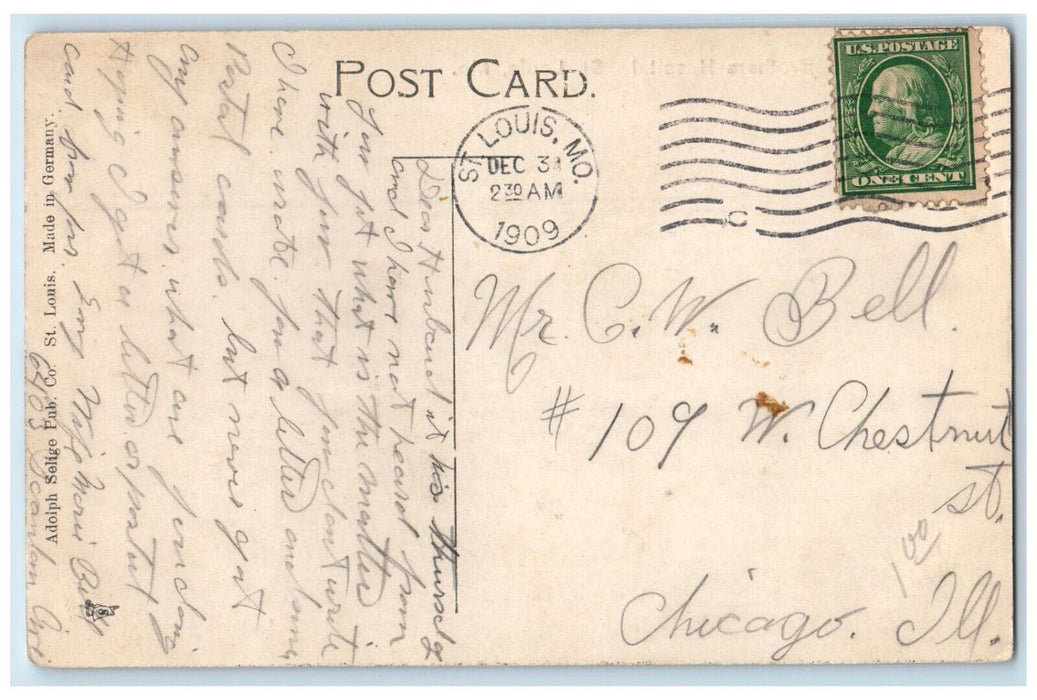 POST CARD.
U.S. POSTAGE
ONE CENT
ST. LOUIS, MO.
DEC 31
2 30 AM
1909
Mr. C. W. Bell.
# 109 W. Chestnut
st.
Chicago. Ill.
1 00
Dear Husband it his thursdy
and I have not heard from
you yet what is the matter
with you that you dont write
I have wrote you a letter and
Postal cards. but never got
any answer what are you doing
Hoping I get a letter or postal
card from you. Wife Marie Bell
6403 Scanlan Ave
Adolph Selige Pub. Co. St. Louis. Made in Germany.